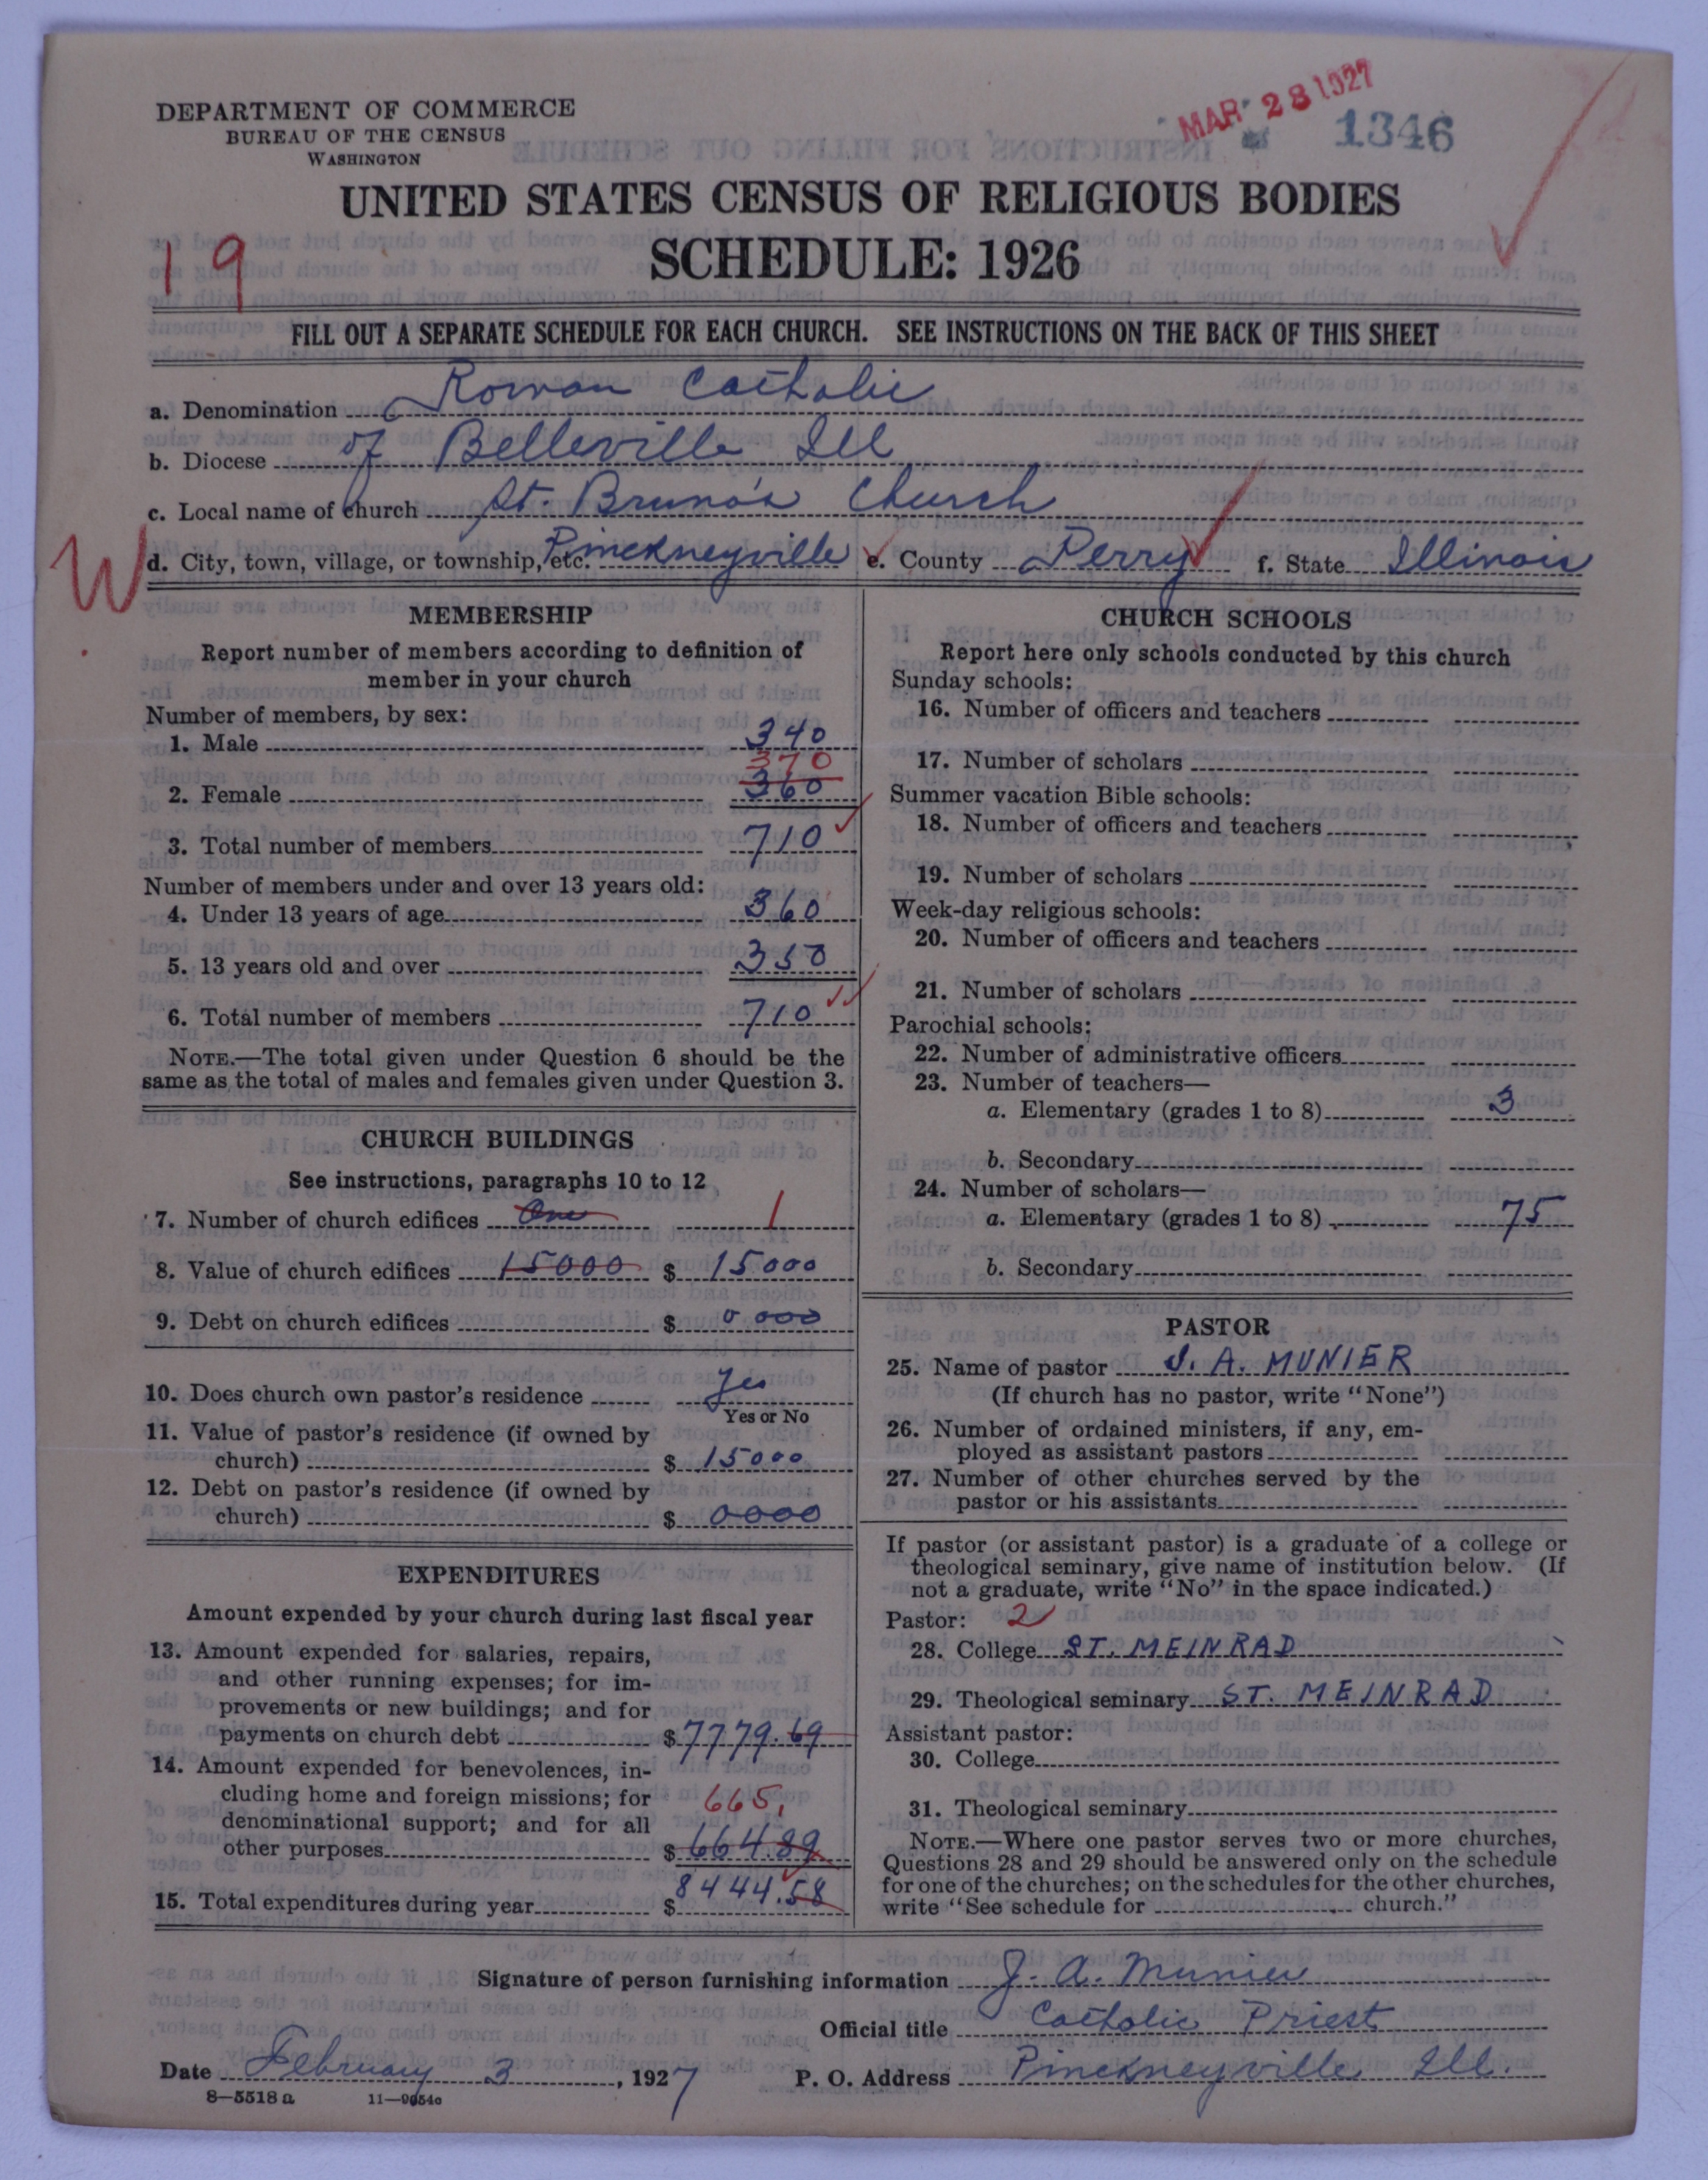 MAR 28 1927
1346
DEPARTMENT OF COMMERCE
BUREAU OF THE CENSUS
WASHINGTON
UNITED STATES CENSUS OF RELIGIOUS BODIES
19
SCHEDULE: 1926
FILL OUT A SEPARATE SCHEDULE FOR EACH CHURCH. SEE INSTRUCTIONS ON THE BACK OF THIS SHEET
a. Denomination Roman Catholic
b. Diocese of Belleville Ill
c. Local name of church St. Bruno's Church
W
d. City, town, village, or township, etc. Pinckneyville e. County Perry f. State Illinois
MEMBERSHIP
Report number of members according to definition of
member in your church
Number of members, by sex:
1. Male 340
370
2. Female 360
3. Total number of members 710
Number of members under and over 13 years old:
4. Under 13 years of age 360
5. 13 years old and over 350
6. Total number of members 710
NOTE.—The total given under Question 6 should be the
same as the total of males and females given under Question 3.
CHURCH BUILDINGS
See instructions, paragraphs 10 to 12
7. Number of church edifices One 1
8. Value of church edifices 15000 $ 15000
9. Debt on church edifices $ 0000
10. Does church own pastor's residence Yes
Yes or No
11. Value of pastor's residence (if owned by
church) $ 15000
12. Debt on pastor's residence (if owned by
church) $ 0000
EXPENDITURES
Amount expended by your church during last fiscal year
13. Amount expended for salaries, repairs,
and other running expenses; for im-
provements or new buildings; and for
payments on church debt $ 7779.69
14. Amount expended for benevolences, in-
cluding home and foreign missions; for
665.
denominational support; and for all
other purposes $ 664.89
15. Total expenditures during year $ 8444.58
CHURCH SCHOOLS
Report here only schools conducted by this church
Sunday schools:
16. Number of officers and teachers
17. Number of scholars
Summer vacation Bible schools:
18. Number of officers and teachers
19. Number of scholars
Week-day religious schools:
20. Number of officers and teachers
21. Number of scholars
Parochial schools:
22. Number of administrative officers
23. Number of teachers—
a. Elementary (grades 1 to 8) 3
b. Secondary
24. Number of scholars—
a. Elementary (grades 1 to 8) 75
b. Secondary
PASTOR
25. Name of pastor J. A. MUNIER
(If church has no pastor, write "None")
26. Number of ordained ministers, if any, em-
ployed as assistant pastors
27. Number of other churches served by the
pastor or his assistants
If pastor (or assistant pastor) is a graduate of a college or
theological seminary, give name of institution below. (If
not a graduate, write "No" in the space indicated.)
Pastor: 2
28. College ST. MEINRAD
29. Theological seminary ST. MEINRAD
Assistant pastor:
30. College
31. Theological seminary
NOTE.—Where one pastor serves two or more churches,
Questions 28 and 29 should be answered only on the schedule
for one of the churches; on the schedules for the other churches,
write "See schedule for church."
Signature of person furnishing information J. A. Munier
Official title Catholic Priest
Date February 3, 1927 P. O. Address Pinckneyville Ill.
8—5518 a 11—9654a